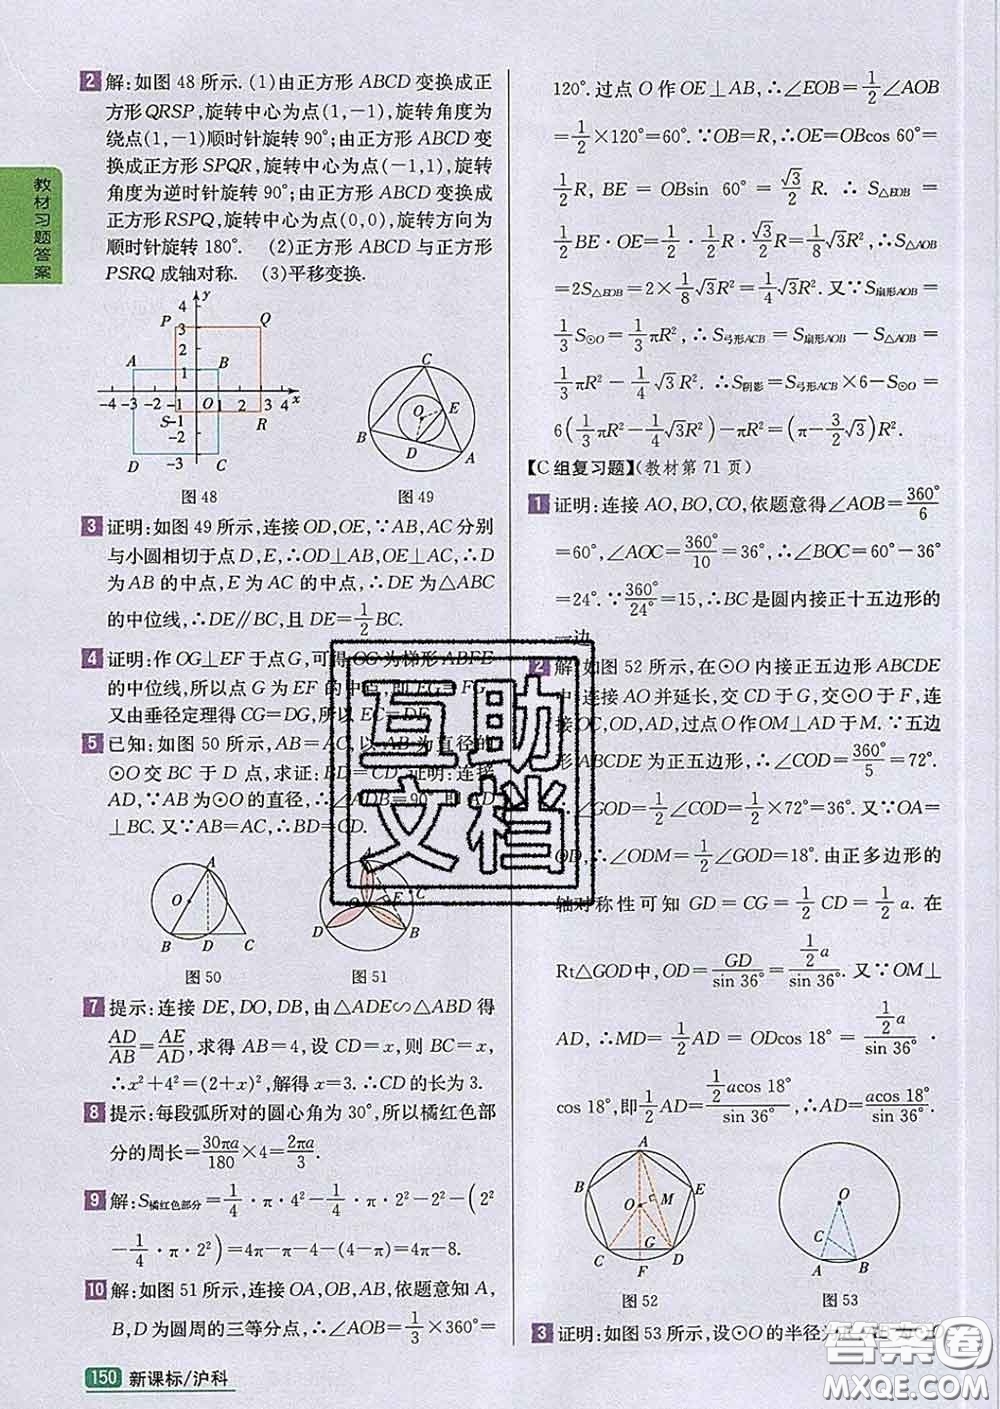 教材习题答案
2 解:如图 48 所示. (1)由正方形 ABCD 变换成正
方形 QRSP,旋转中心为点(1,-1),旋转角度为
绕点(1,-1)顺时针旋转 90°;由正方形 ABCD 变
换成正方形 SPQR,旋转中心为点(-1,1),旋转
角度为逆时针旋转 90°;由正方形 ABCD 变换成
正方形 RSPQ,旋转中心为点(0,0),旋转方向为
顺时针旋转 180°. (2)正方形 ABCD 与正方形
PSRQ 成轴对称. (3)平移变换.
图 48
图 49
3 证明:如图 49 所示,连接 OD,OE,∵AB,AC 分别
与小圆相切于点 D,E,∴OD⊥AB,OE⊥AC,∴D
为 AB 的中点,E 为 AC 的中点,∴DE 为△ABC
的中位线,∴DE∥BC,且 DE=1/2 BC.
4 证明:作 OG⊥EF 于点 G,可得 OG 为梯形 ABFE
的中位线,所以点 G 为 EF 的中点,即 EG=FG.
又由垂径定理得 CG=DG,所以 EC=DF.
5 已知:如图 50 所示,AB=AC,以 AB 为直径的
⊙O 交 BC 于 D 点,求证:BD=CD. 证明:连接
AD,∵AB 为⊙O 的直径,∴∠ADB=90°,即 AD
⊥BC. 又∵AB=AC,∴BD=CD.
图 50
图 51
7 提示:连接 DE,DO,DB,由△ADE∽△ABD 得
AD/AB=AE/AD,求得 AB=4,设 CD=x,则 BC=x,
∴x²+4²=(2+x)²,解得 x=3. ∴CD 的长为 3.
8 提示:每段弧所对的圆心角为 30°,所以橘红色部
分的周长=30πa/180×4=2πa/3.
9 解:S橘红色部分=1/4·π·4²-1/4·π·2²-2²-(2²
-1/4·π·2²)=4π-π-4-(4-π)=4π-8.
10 解:如图 51 所示,连接 OA,OB,AB,依题意知 A,
B,D 为圆周的三等分点,∴∠AOB=1/3×360°=
120°. 过点 O 作 OE⊥AB,∴∠EOB=1/2∠AOB
=1/2×120°=60°. ∵OB=R,∴OE=OBcos 60°=
1/2 R, BE = OBsin 60° = √3/2 R. ∴ S△EOB =
1/2 BE·OE=1/2·1/2 R·√3/2 R=1/8 √3R²,∴S△AOB
=2S△EOB=2×1/8 √3R²=1/4 √3R². 又∵S扇形AOB=
1/3 S⊙O=1/3 πR²,∴S弓形ACB=S扇形AOB-S△AOB=
1/3 πR²-1/4 √3R². ∴S阴影=S弓形ACB×6-S⊙O=
6(1/3 πR²-1/4 √3R²)-πR²=(π-3/2 √3)R².
【C 组复习题】(教材第 71 页)
1 证明:连接 AO,BO,CO,依题意得∠AOB=360°/6
=60°,∠AOC=360°/10=36°,∴∠BOC=60°-36°
=24°. ∵360°/24°=15,∴BC 是圆内接正十五边形的
一边.
2 解:如图 52 所示,在⊙O 内接正五边形 ABCDE
中,连接 AO 并延长,交 CD 于 G,交⊙O 于 F,连
接 OC,OD,AD,过点 O 作 OM⊥AD 于 M. ∵五边
形 ABCDE 为正五边形,∴∠COD=360°/5=72°.
∴∠GOD=1/2∠COD=1/2×72°=36°. 又∵OA=
OD,∴∠ODM=1/2∠GOD=18°. 由正多边形的
轴对称性可知 GD=CG=1/2 CD=1/2 a. 在
Rt△GOD中,OD=GD/sin 36°=(1/2 a)/sin 36°. 又∵OM⊥
AD,∴MD=1/2 AD=ODcos 18°=(1/2 a)/sin 36°·
cos 18°,即1/2 AD=(1/2 acos 18°)/sin 36°,∴AD=acos 18°/sin 36°.
图 52
图 53
3 证明:如图 53 所示,设⊙O 的半径为
150 新课标/沪科
互助
文档
答案圈
MXQE.COM